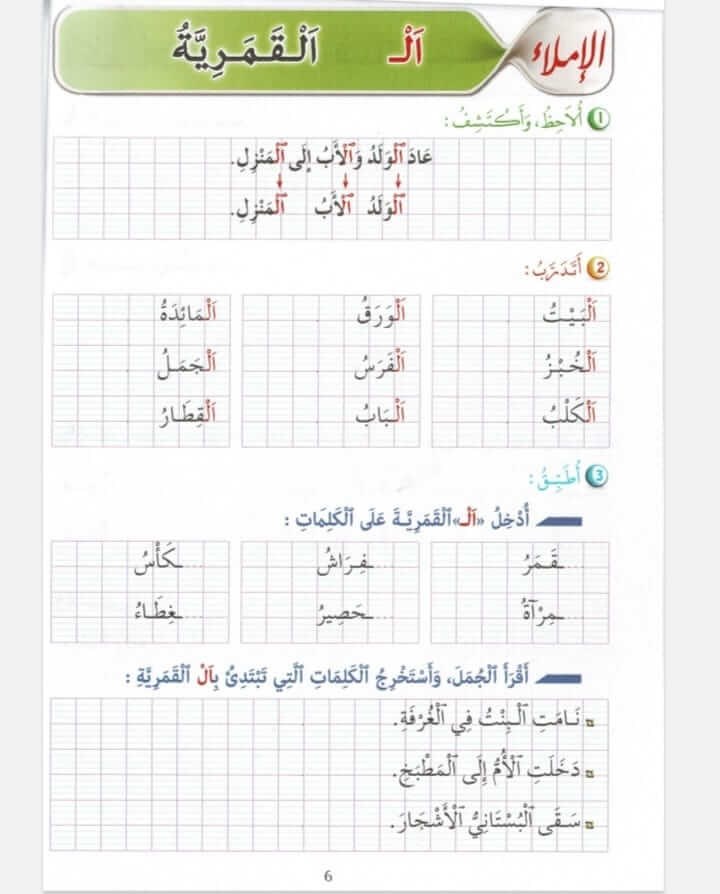 الإملاء
اَلْـ اَلْـقَـمَـرِيَّـةُ
1 أُلَاحِظُ، وَأَكْـتَـشِـفُ :
عَادَ ٱلْوَلَدُ وَٱلْأَبُ إِلَى ٱلْمَنْزِلِ.
ٱلْوَلَدُ ٱلْأَبُ ٱلْمَنْزِلِ.
2 أَتَـدَرَّبُ :
اَلْبَـيْـتُ اَلْوَرَقُ اَلْمَائِدَةُ
اَلْخُبْـزُ اَلْفَرَسُ اَلْجَمَـلُ
اَلْكَلْبُ اَلْبَابُ اَلْقِطَارُ
3 أُطَبِّـقُ :
أُدْخِلُ «اَلْـ» ٱلْقَمَرِيَّـةَ عَلَى ٱلْكَلِمَاتِ :
....ـقَـمَـرُ ....ـفِـرَاشُ ....ـكَأْسُ
....ـمِرْآةُ ....ـحَصِيرُ ....ـغِطَـاءُ
أَقْرَأُ ٱلْجُمَلَ، وَأَسْتَخْرِجُ ٱلْكَلِمَاتِ ٱلَّتِي تَبْتَدِئُ بِـاَلْ ٱلْقَمَرِيَّةِ :
نَـامَتِ ٱلْـبِنْتُ فِي ٱلْغُرْفَةِ.
دَخَلَتِ ٱلْأُمُّ إِلَى ٱلْمَطْبَخِ.
سَـقَى ٱلْبُسْتَانِيُّ ٱلْأَشْجَارَ.
6